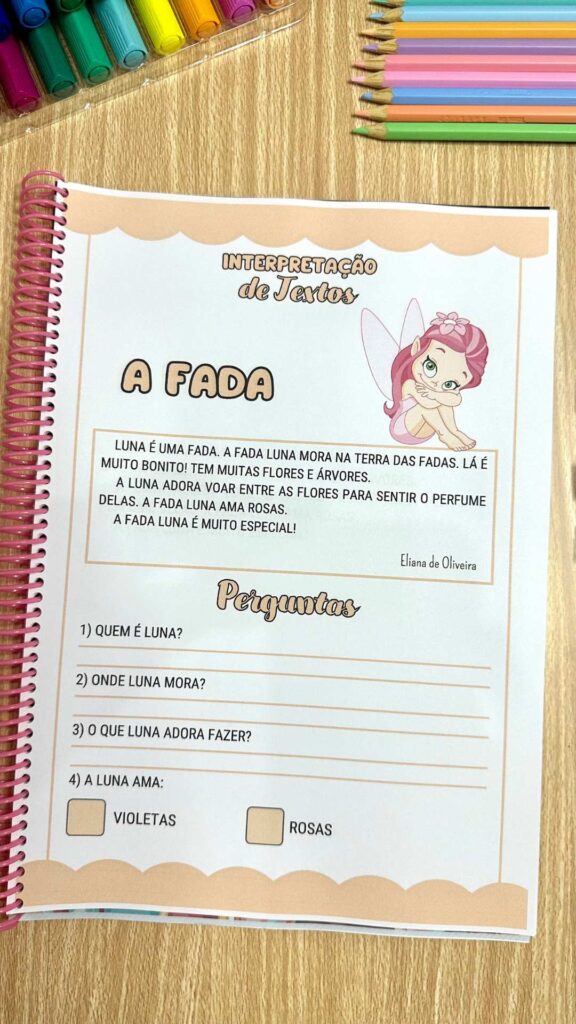 INTERPRETAÇÃO
de Textos
A FADA
LUNA É UMA FADA. A FADA LUNA MORA NA TERRA DAS FADAS. LÁ É
MUITO BONITO! TEM MUITAS FLORES E ÁRVORES.
A LUNA ADORA VOAR ENTRE AS FLORES PARA SENTIR O PERFUME
DELAS. A FADA LUNA AMA ROSAS.
A FADA LUNA É MUITO ESPECIAL!
Eliana de Oliveira
Perguntas
1) QUEM É LUNA?
2) ONDE LUNA MORA?
3) O QUE LUNA ADORA FAZER?
4) A LUNA AMA:
VIOLETAS
ROSAS